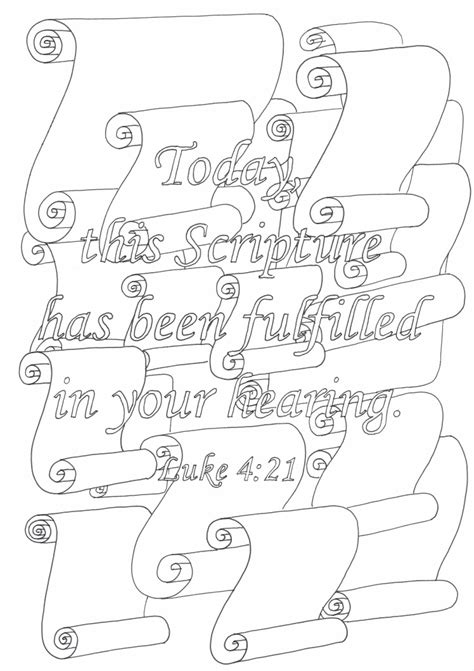 Today,
this Scripture
has been fulfilled
in your hearing.
Luke 4:21